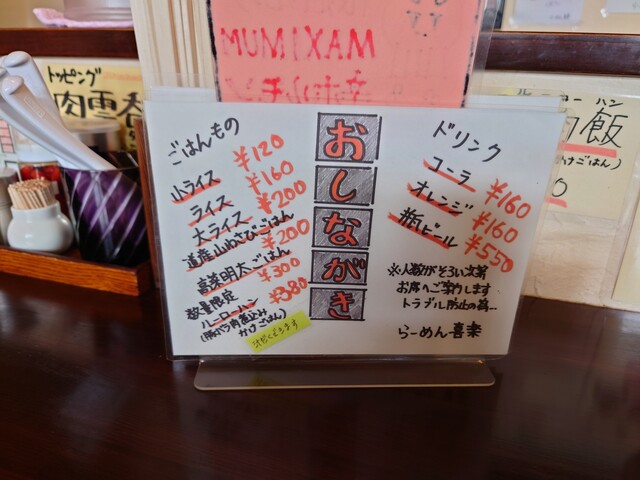 MUMIXAM
トッピング
肉雪
飯
おしながき
ごはんもの
小ライス ¥120
ライス ¥160
大ライス ¥200
道産山わさびごはん ¥200
喜楽明太ごはん ¥300
数量限定
ルーローハン ¥380
(豚バラ肉煮込み
かけごはん)
ドリンク
コーラ ¥160
オレンジ ¥160
瓶ビール ¥550
※人数がそろい次第
お席へご案内します
トラブル防止の為...
らーめん喜楽